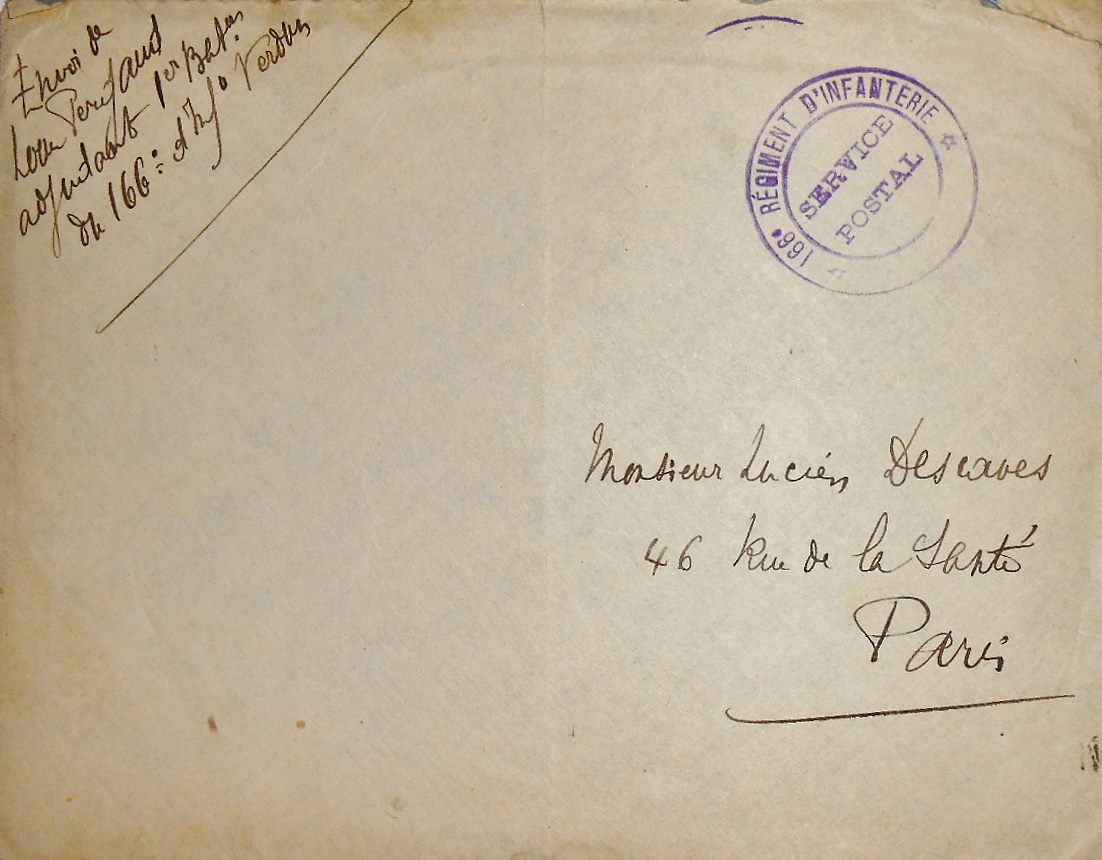 Envoi de
Léon
adjudant 1er Baton
du 166e d'Inf Verdun
166e RÉGIMENT D'INFANTERIE
SERVICE
POSTAL
Monsieur Lucien Descaves
46 Rue de la Santé
Paris